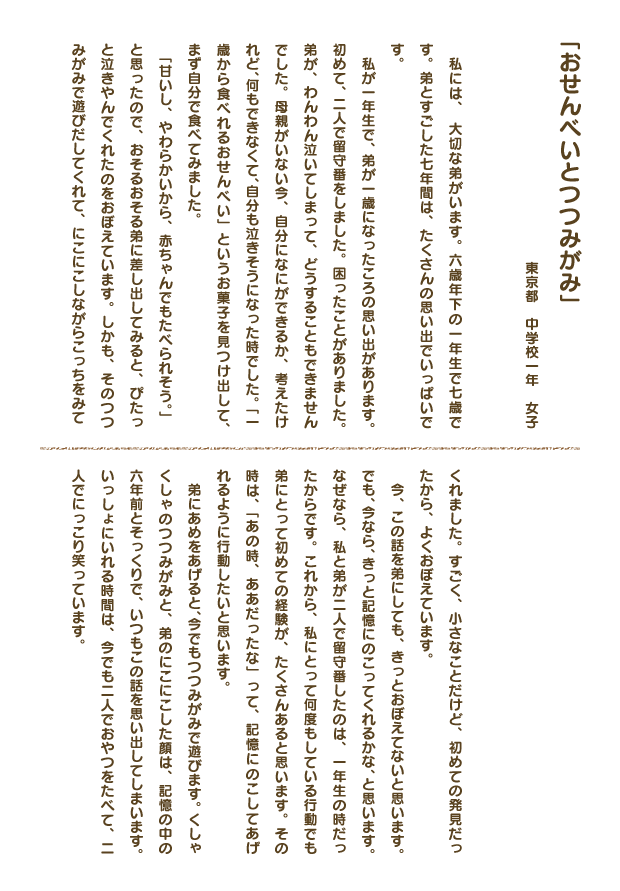 「おせんべいとつつみがみ」
東京都　中学校一年　女子
　私には、大切な弟がいます。六歳年下の一年生で七歳で
す。弟とすごした七年間は、たくさんの思い出でいっぱいで
す。
　私が一年生で、弟が一歳になったころの思い出があります。
初めて、二人で留守番をしました。困ったことがありました。
弟が、わんわん泣いてしまって、どうすることもできません
でした。母親がいない今、自分になにができるか、考えたけ
れど、何もできなくて、自分も泣きそうになった時でした。「一
歳から食べれるおせんべい」というお菓子を見つけ出して、
まず自分で食べてみました。
　「甘いし、やわらかいから、赤ちゃんでもたべられそう。」
と思ったので、おそるおそる弟に差し出してみると、ぴたっ
と泣きやんでくれたのをおぼえています。しかも、そのつつ
みがみで遊びだしてくれて、にこにこしながらこっちをみて
くれました。すごく、小さなことだけど、初めての発見だっ
たから、よくおぼえています。
　今、この話を弟にしても、きっとおぼえてないと思います。
でも、今なら、きっと記憶にのこってくれるかな、と思います。
なぜなら、私と弟が二人で留守番したのは、一年生の時だっ
たからです。これから、私にとって何度もしている行動でも
弟にとって初めての経験が、たくさんあると思います。その
時は、「あの時、ああだったな」って、記憶にのこしてあげ
れるように行動したいと思います。
　弟にあめをあげると、今でもつつみがみで遊びます。くしゃ
くしゃのつつみがみと、弟のにこにこした顔は、記憶の中の
六年前とそっくりで、いつもこの話を思い出してしまいます。
いっしょにいれる時間は、今でも二人でおやつをたべて、二
人でにっこり笑っています。